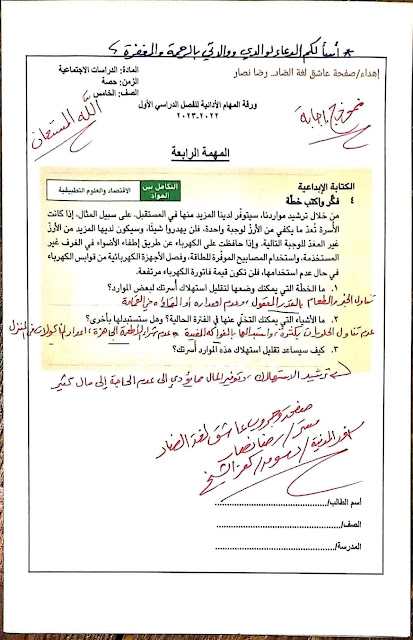 * أسألكم الدعاء لوالدي ووالدتي بالرحمة والمغفرة
إهداء/صفحة عاشق لغة الضاد. رضا نصار
المادة: الدراسات الاجتماعية
الزمن: حصة
الصف: الخامس
ورقة المهام الأدائية للفصل الدراسي الأول
٢٠٢٢-٢٠٢٣
نموذج إجابة
الله المستعان
المهمة الرابعة
التكامل بين المواد
الاقتصاد والعلوم التطبيقية
الكتابة الإبداعية
٤ فكّر واكتب خطّة
من خلال ترشيد مواردنا، سيتوفر لدينا المزيد منها في المستقبل. على سبيل المثال، إذا كانت
الأسرة تُعدّ ما يكفي من الأرزّ لوجبة واحدة، فلن يهدروا شيئًا، وسيكون لديها المزيد من الأرزّ
غير المعدّ للوجبة التالية. وإذا حافظت على الكهرباء عن طريق إطفاء الأضواء في الغرف غير
المستخدمة، واستخدام المصابيح الموفّرة للطاقة، وفصل الأجهزة الكهربائية من قوابس الكهرباء
في حال عدم استخدامها، فلن تكون قيمة فاتورة الكهرباء مرتفعة.
١. ما الخطّة التي يمكنك وضعها لتقليل استهلاك أسرتك لبعض الموارد؟
تناول الخبز والطعام بالقدر المعقول، وعدم إهداره أو إلقائه في القمامة
٢. ما الأشياء التي يمكنك التخلّي عنها في الفترة الحالية؟ وهل ستستبدلها بأخرى؟
عدم تناول الحلويات بكثرة، واستبدالها بالفواكه المفيدة، عدم شراء الأطعمة الجاهزة، إعداد المأكولات في المنزل
٣. كيف سيساعد تقليل استهلاك هذه الموارد أسرتك؟
ترشيد الاستهلاك، وتوفير المال مما يؤدي إلى عدم الحاجة إلى مال كثير
صفحة وجروب عاشق لغة الضاد
مستر/ رضا نصار
دسوق/ كفر الشيخ
اسم الطالب/
الصف/
المدرسة/